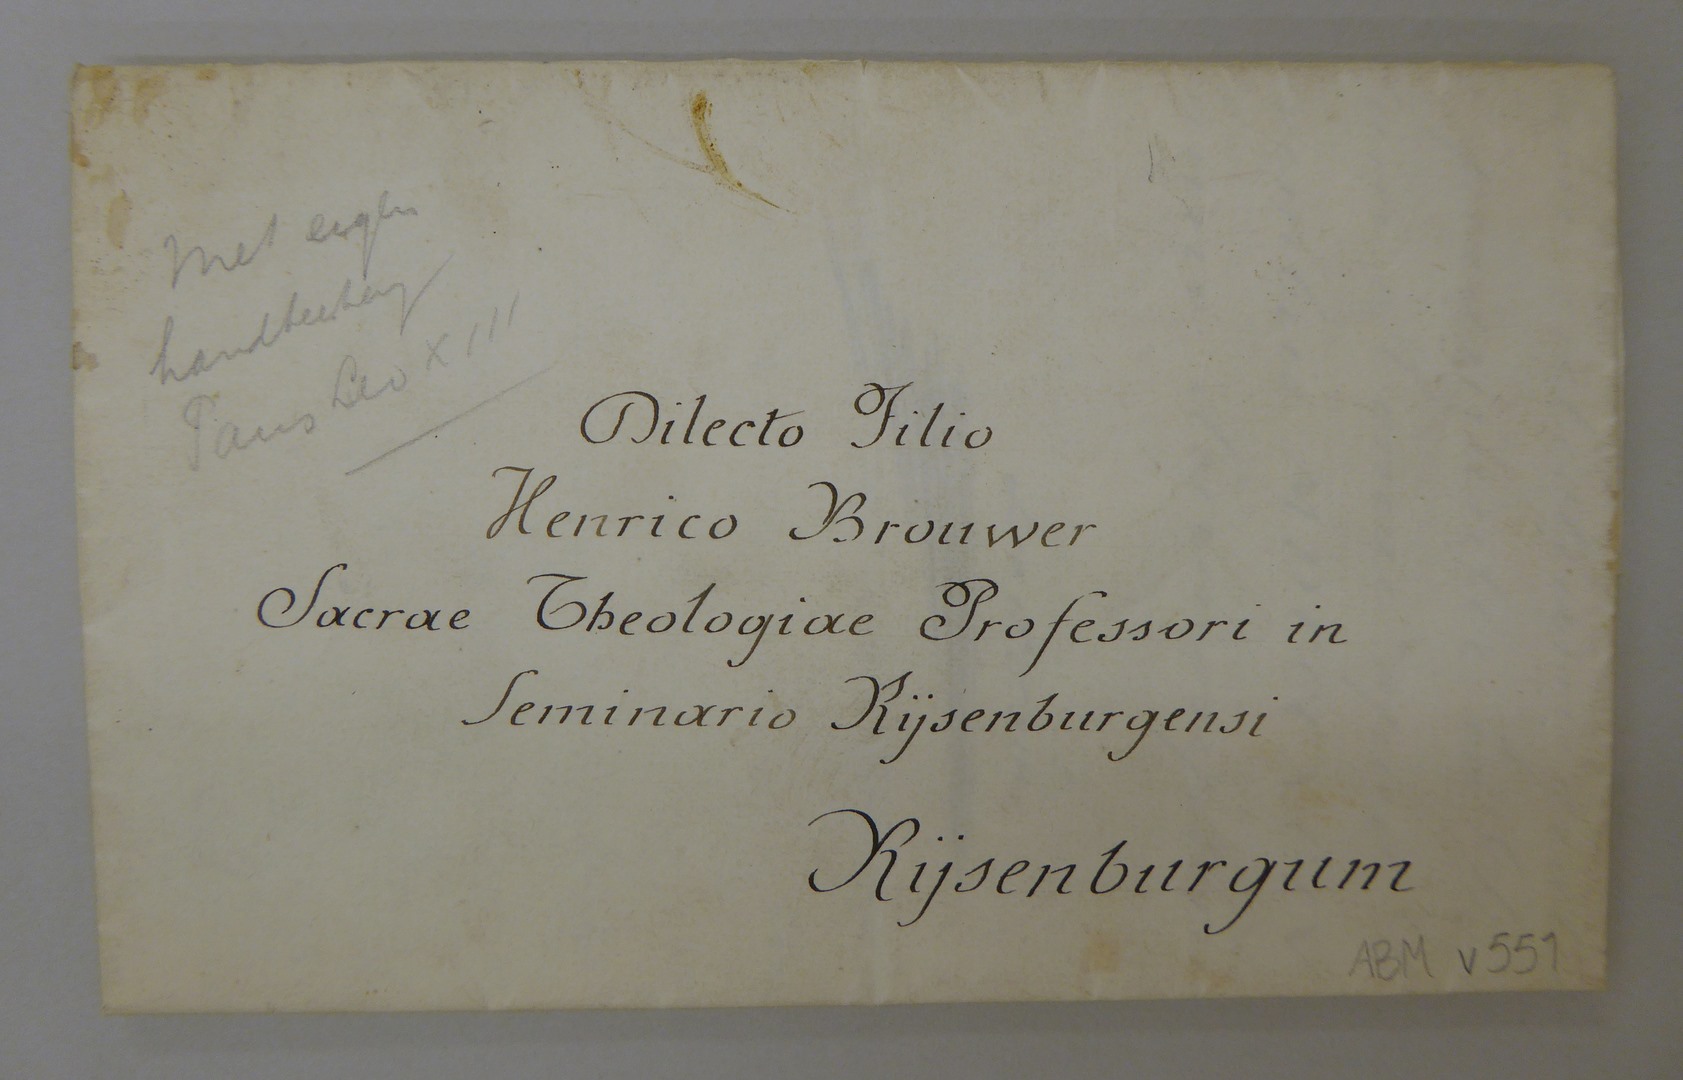 Met eigen
handteekening
Paus Leo XIII
Dilecto Filio
Henrico Brouwer
Sacrae Theologiae Professori in
Seminario Rijsenburgensi
Rijsenburgum
ABM v551